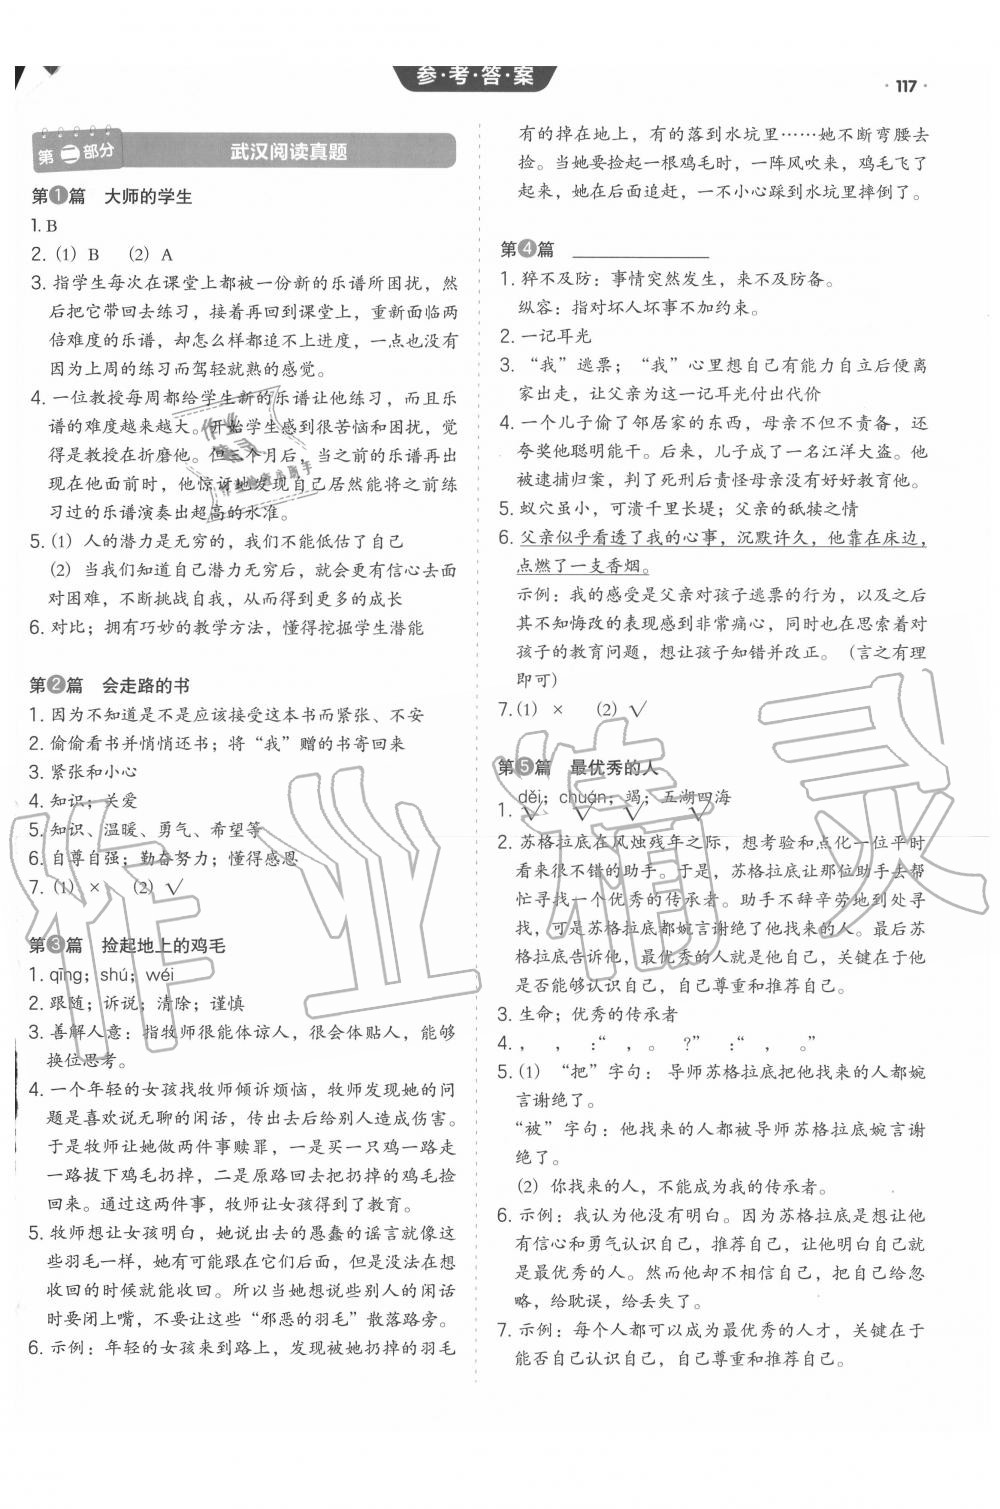 参·考·答·案
·117·
第二部分 武汉阅读真题
第1篇 大师的学生
1. B
2. (1) B (2) A
3. 指学生每次在课堂上都被一份新的乐谱所困扰，然
后把它带回去练习，接着再回到课堂上，重新面临两
倍难度的乐谱，却怎么样都追不上进度，一点也没有
因为上周的练习而驾轻就熟的感觉。
4. 一位教授每周都给学生新的乐谱让他练习，而且乐
谱的难度越来越大。开始学生感到很苦恼和困扰，觉
得是教授在折磨他。但三个月后，当之前的学生再出
现在他面前时，他惊讶地发现自己居然能将之前练
习过的乐谱演奏出超高的水准。
5. (1) 人的潜力是无穷的，我们不能低估了自己
(2) 当我们知道自己潜力无穷后，就会更有信心去面
对困难，不断挑战自我，从而得到更多的成长
6. 对比；拥有巧妙的教学方法，懂得挖掘学生潜能
第2篇 会走路的书
1. 因为不知道是不是应该接受这本书而紧张、不安
2. 偷偷看书并悄悄还书；将“我”赠的书寄回来
3. 紧张和小心
4. 知识；关爱
5. 知识、温暖、勇气、希望等
6. 自尊自强；勤奋努力；懂得感恩
7. (1) × (2) √
第3篇 捡起地上的鸡毛
1. qīng；shú；wéi
2. 跟随；诉说；清除；谨慎
3. 善解人意：指牧师很能体谅人，很会体贴人，能够
换位思考。
4. 一个年轻的女孩找牧师倾诉烦恼，牧师发现她的问
题是喜欢说无聊的闲话，传出去后给别人造成伤害。
于是牧师让她做两件事赎罪，一是买一只鸡一路走
一路拔下鸡毛扔掉，二是原路回去把扔掉的鸡毛捡
回来。通过这两件事，牧师让女孩得到了教育。
5. 牧师想让女孩明白，她说出去的愚蠢的谣言就像这
些羽毛一样，她有可能跟在它们后面，但是没法在想
收回的时候就能收回。所以当她想说些别人的闲话
时要闭上嘴，不要让这些“邪恶的羽毛”散落路旁。
6. 示例：年轻的女孩来到路上，发现被她扔掉的羽毛
有的掉在地上，有的落到水坑里……她不断弯腰去
捡。当她要捡起一根鸡毛时，一阵风吹来，鸡毛飞了
起来，她在后面追赶，一不小心踩到水坑里摔倒了。
第4篇
1. 猝不及防：事情突然发生，来不及防备。
纵容：指对坏人坏事不加约束。
2. 一记耳光
3. “我”逃票；“我”心里想自己有能力自立后便离
家出走，让父亲为这一记耳光付出代价
4. 一个儿子偷了邻居家的东西，母亲不但不责备，还
夸奖他聪明能干。后来，儿子成了一名江洋大盗。他
被逮捕归案，判了死刑后责怪母亲没有好好教育他。
5. 蚁穴虽小，可溃千里长堤；父亲的舐犊之情
6. 父亲似乎看透了我的心事，沉默许久，他靠在床边，
点燃了一支香烟。
示例：我的感受是父亲对孩子逃票的行为，以及之后
其不知悔改的表现感到非常痛心，同时也在思索着对
孩子的教育问题，想让孩子知错并改正。（言之有理
即可）
7. (1) × (2) √
第5篇 最优秀的人
1. děi；chuán；竭；五湖四海
√ √ √ √
2. 苏格拉底在风烛残年之际，想考验和点化一位平时
看来很不错的助手。于是，苏格拉底让那位助手去帮
忙寻找一个优秀的传承者。助手不辞辛劳地到处寻
找，可是苏格拉底都婉言谢绝了他找来的人。最后苏
格拉底告诉他，最优秀的人就是他自己，关键在于他
是否能够认识自己，自己尊重和推荐自己。
3. 生命；优秀的传承者
4. ， ， ：“ ， 。 ？” ：“ ， 。”
5. (1) “把”字句：导师苏格拉底把他找来的人都婉
言谢绝了。
“被”字句：他找来的人都被导师苏格拉底婉言谢
绝了。
(2) 你找来的人，不能成为我的传承者。
6. 示例：我认为他没有明白。因为苏格拉底是想让他
有信心和勇气认识自己，推荐自己，让他明白自己就
是最优秀的人。然而他却不相信自己，把自己给忽
略，给耽误，给丢失了。
7. 示例：每个人都可以成为最优秀的人才，关键在于
能否自己认识自己，自己尊重和推荐自己。
作业精灵